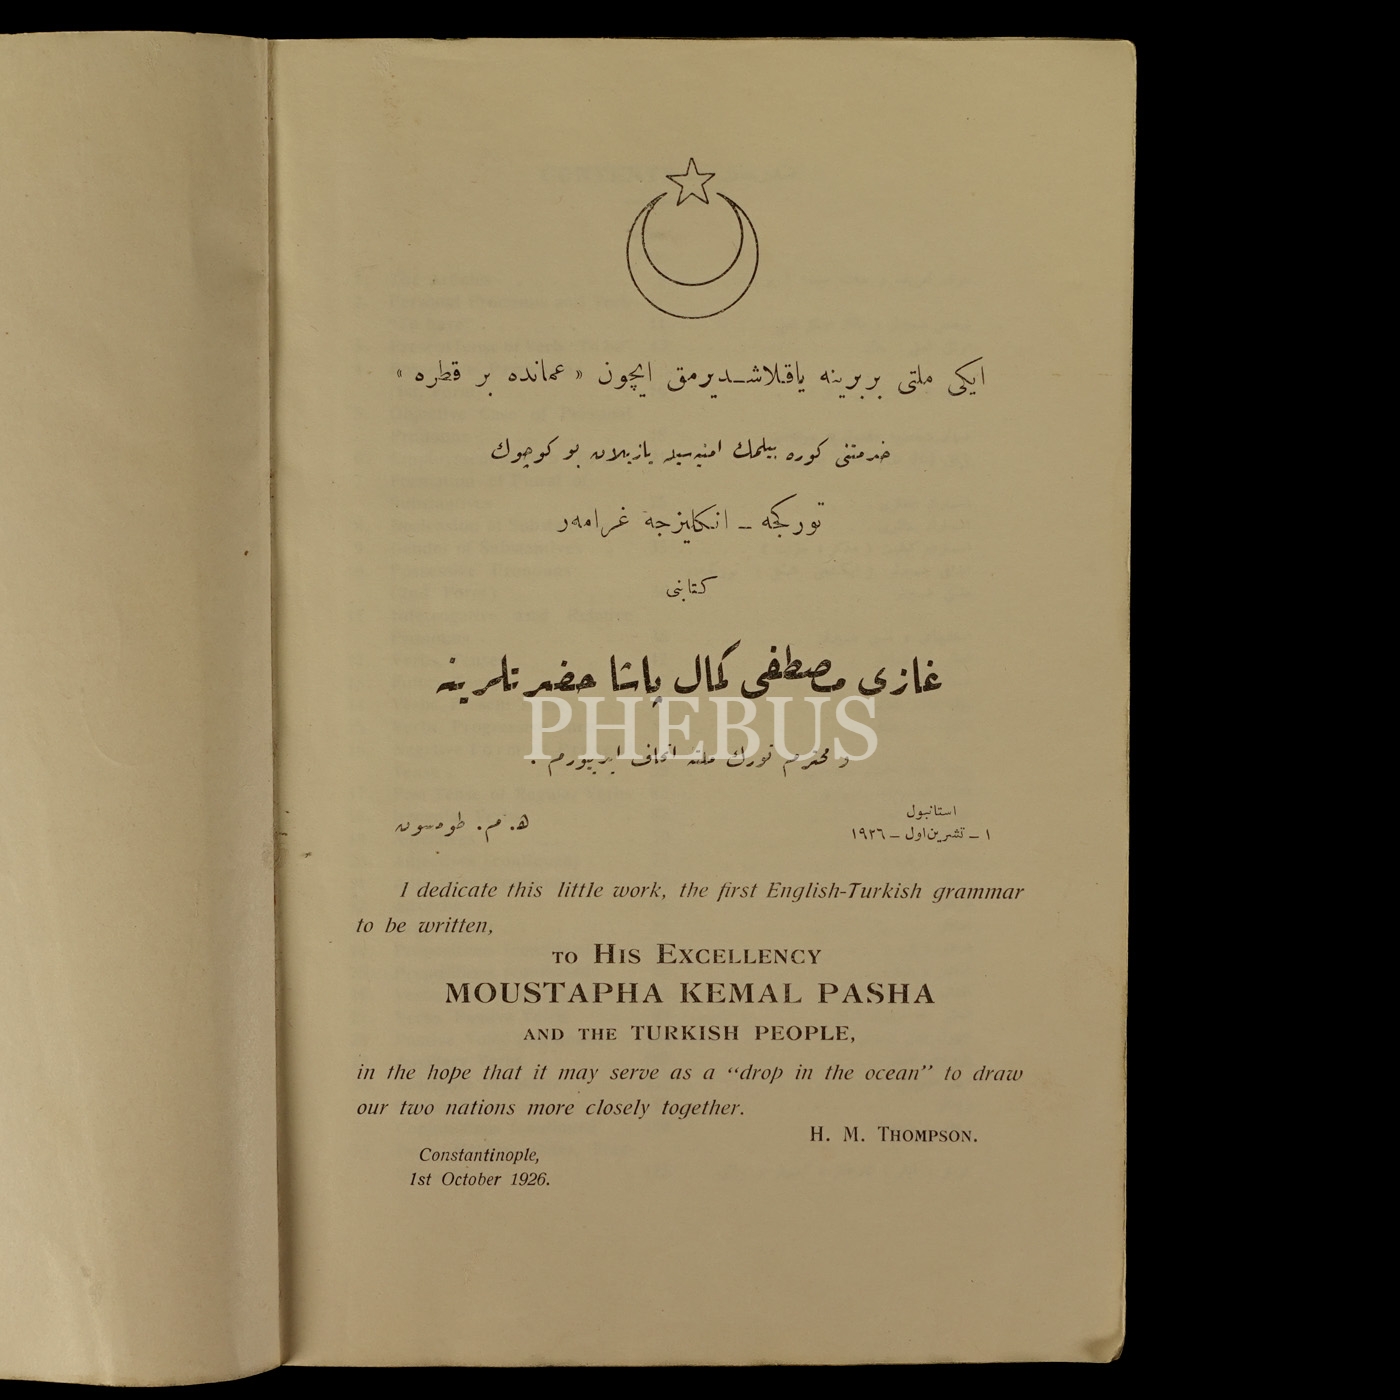 ایکی ملتی بربرینه یاقلاشدیرمق ایچون « عمانده بر قطره »
خدمتنی کوره بیلمك امنیه‌سیله یازیلان بو کوچوك
تورکجه ـ انکلیزجه غرامه‌ر
کتابنی
غازی مصطفی کمال پاشا حضرتلرینه
PHEBUS
و محترم تورك ملتنه اتحاف ایدییورم .
استانبول
١ ـ تشرین‌اول ـ ١٩٢٦
ه. م. طومسون
I dedicate this little work, the first English-Turkish grammar
to be written,
TO HIS EXCELLENCY
MOUSTAPHA KEMAL PASHA
AND THE TURKISH PEOPLE,
in the hope that it may serve as a “drop in the ocean” to draw
our two nations more closely together.
H. M. THOMPSON.
Constantinople,
1st October 1926.